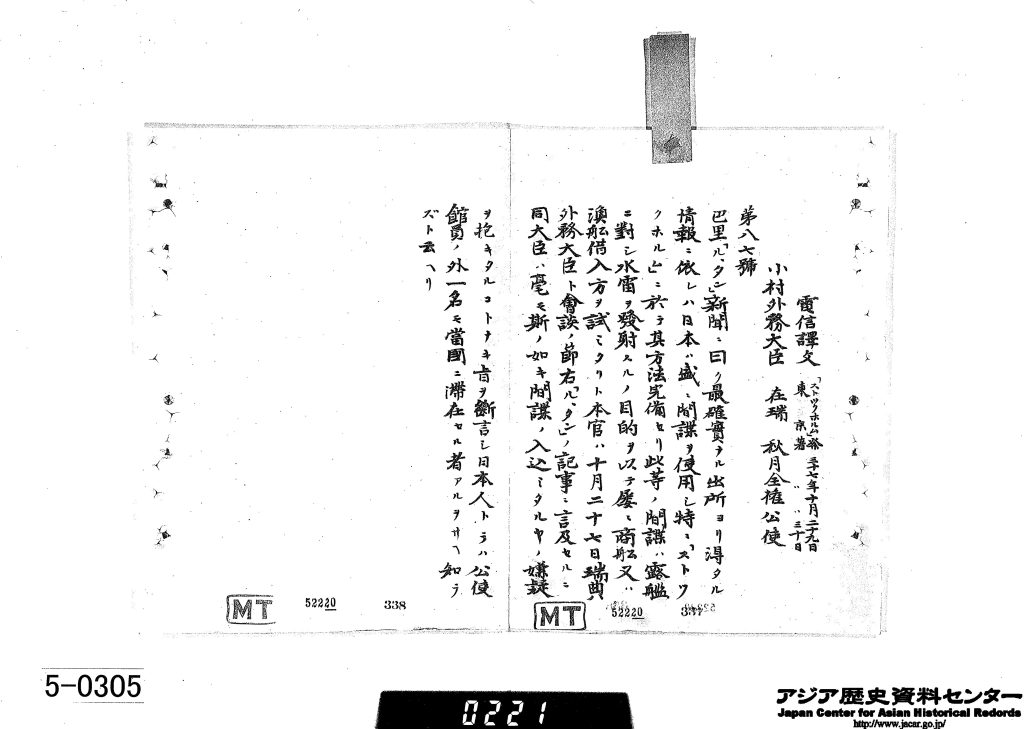 電信譯文
「ストックホルム」發 三十七年十月二十九日
東京着 〃 〃 三十日
小村外務大臣 在瑞 秋月全權公使
第八七號
巴里「ル、タン」新聞ニ曰ク最確實ナル出所ヨリ得タル
情報ニ依レハ日本ハ盛ニ間諜ヲ使用シ特ニ「ストツ
クホルム」ニ於テ其方法完備セリ此等ノ間諜ハ露艦
ニ對シ水雷ヲ發射スルノ目的ヲ以テ屡々商船又ハ
漁船借入方ヲ試ミタリト本官ハ十月二十七日瑞典
外務大臣ト會談ノ節右「ル、タン」ノ記事ニ言及セルニ
同大臣ハ毫モ斯ノ如キ間諜ノ入込ミタルヤノ嫌疑
MT 52220 337
ヲ抱キタルコトナキ旨ヲ斷言シ日本人トシテハ公使
館員ノ外一名モ當國ニ滯在セル者アルヲ知ラ
ズト云ヘリ
MT 52220 338
5-0305
0221
アジア歴史資料センター
Japan Center for Asian Historical Records
http://www.jacar.go.jp/